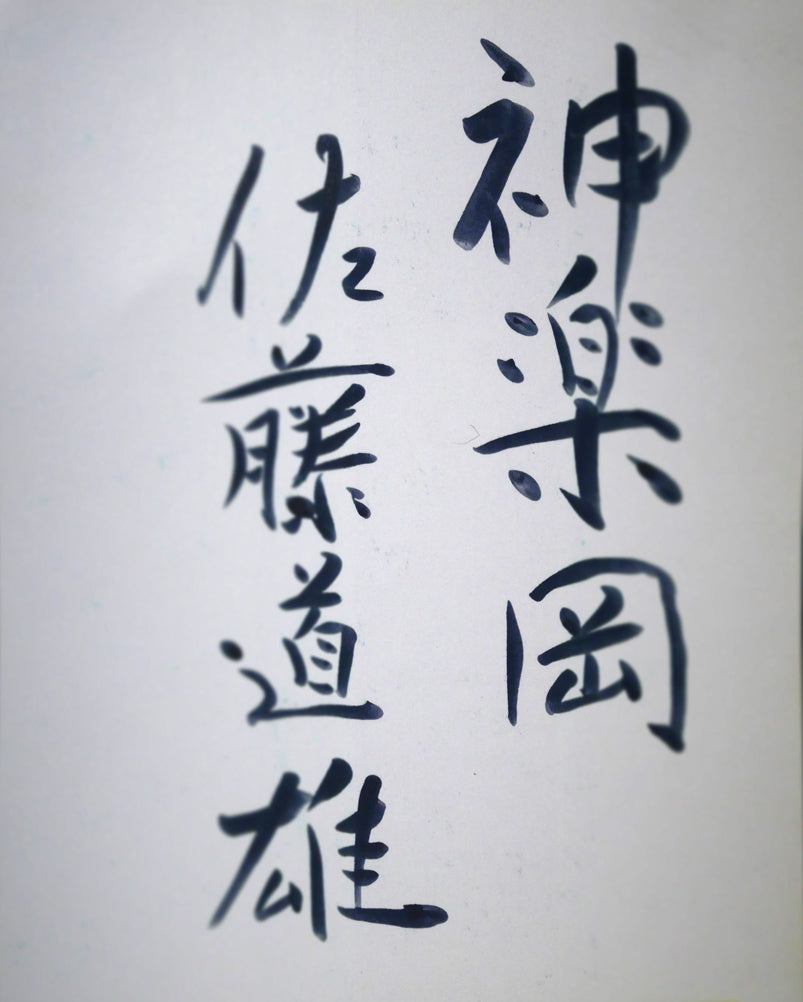 神楽岡
佐藤道雄